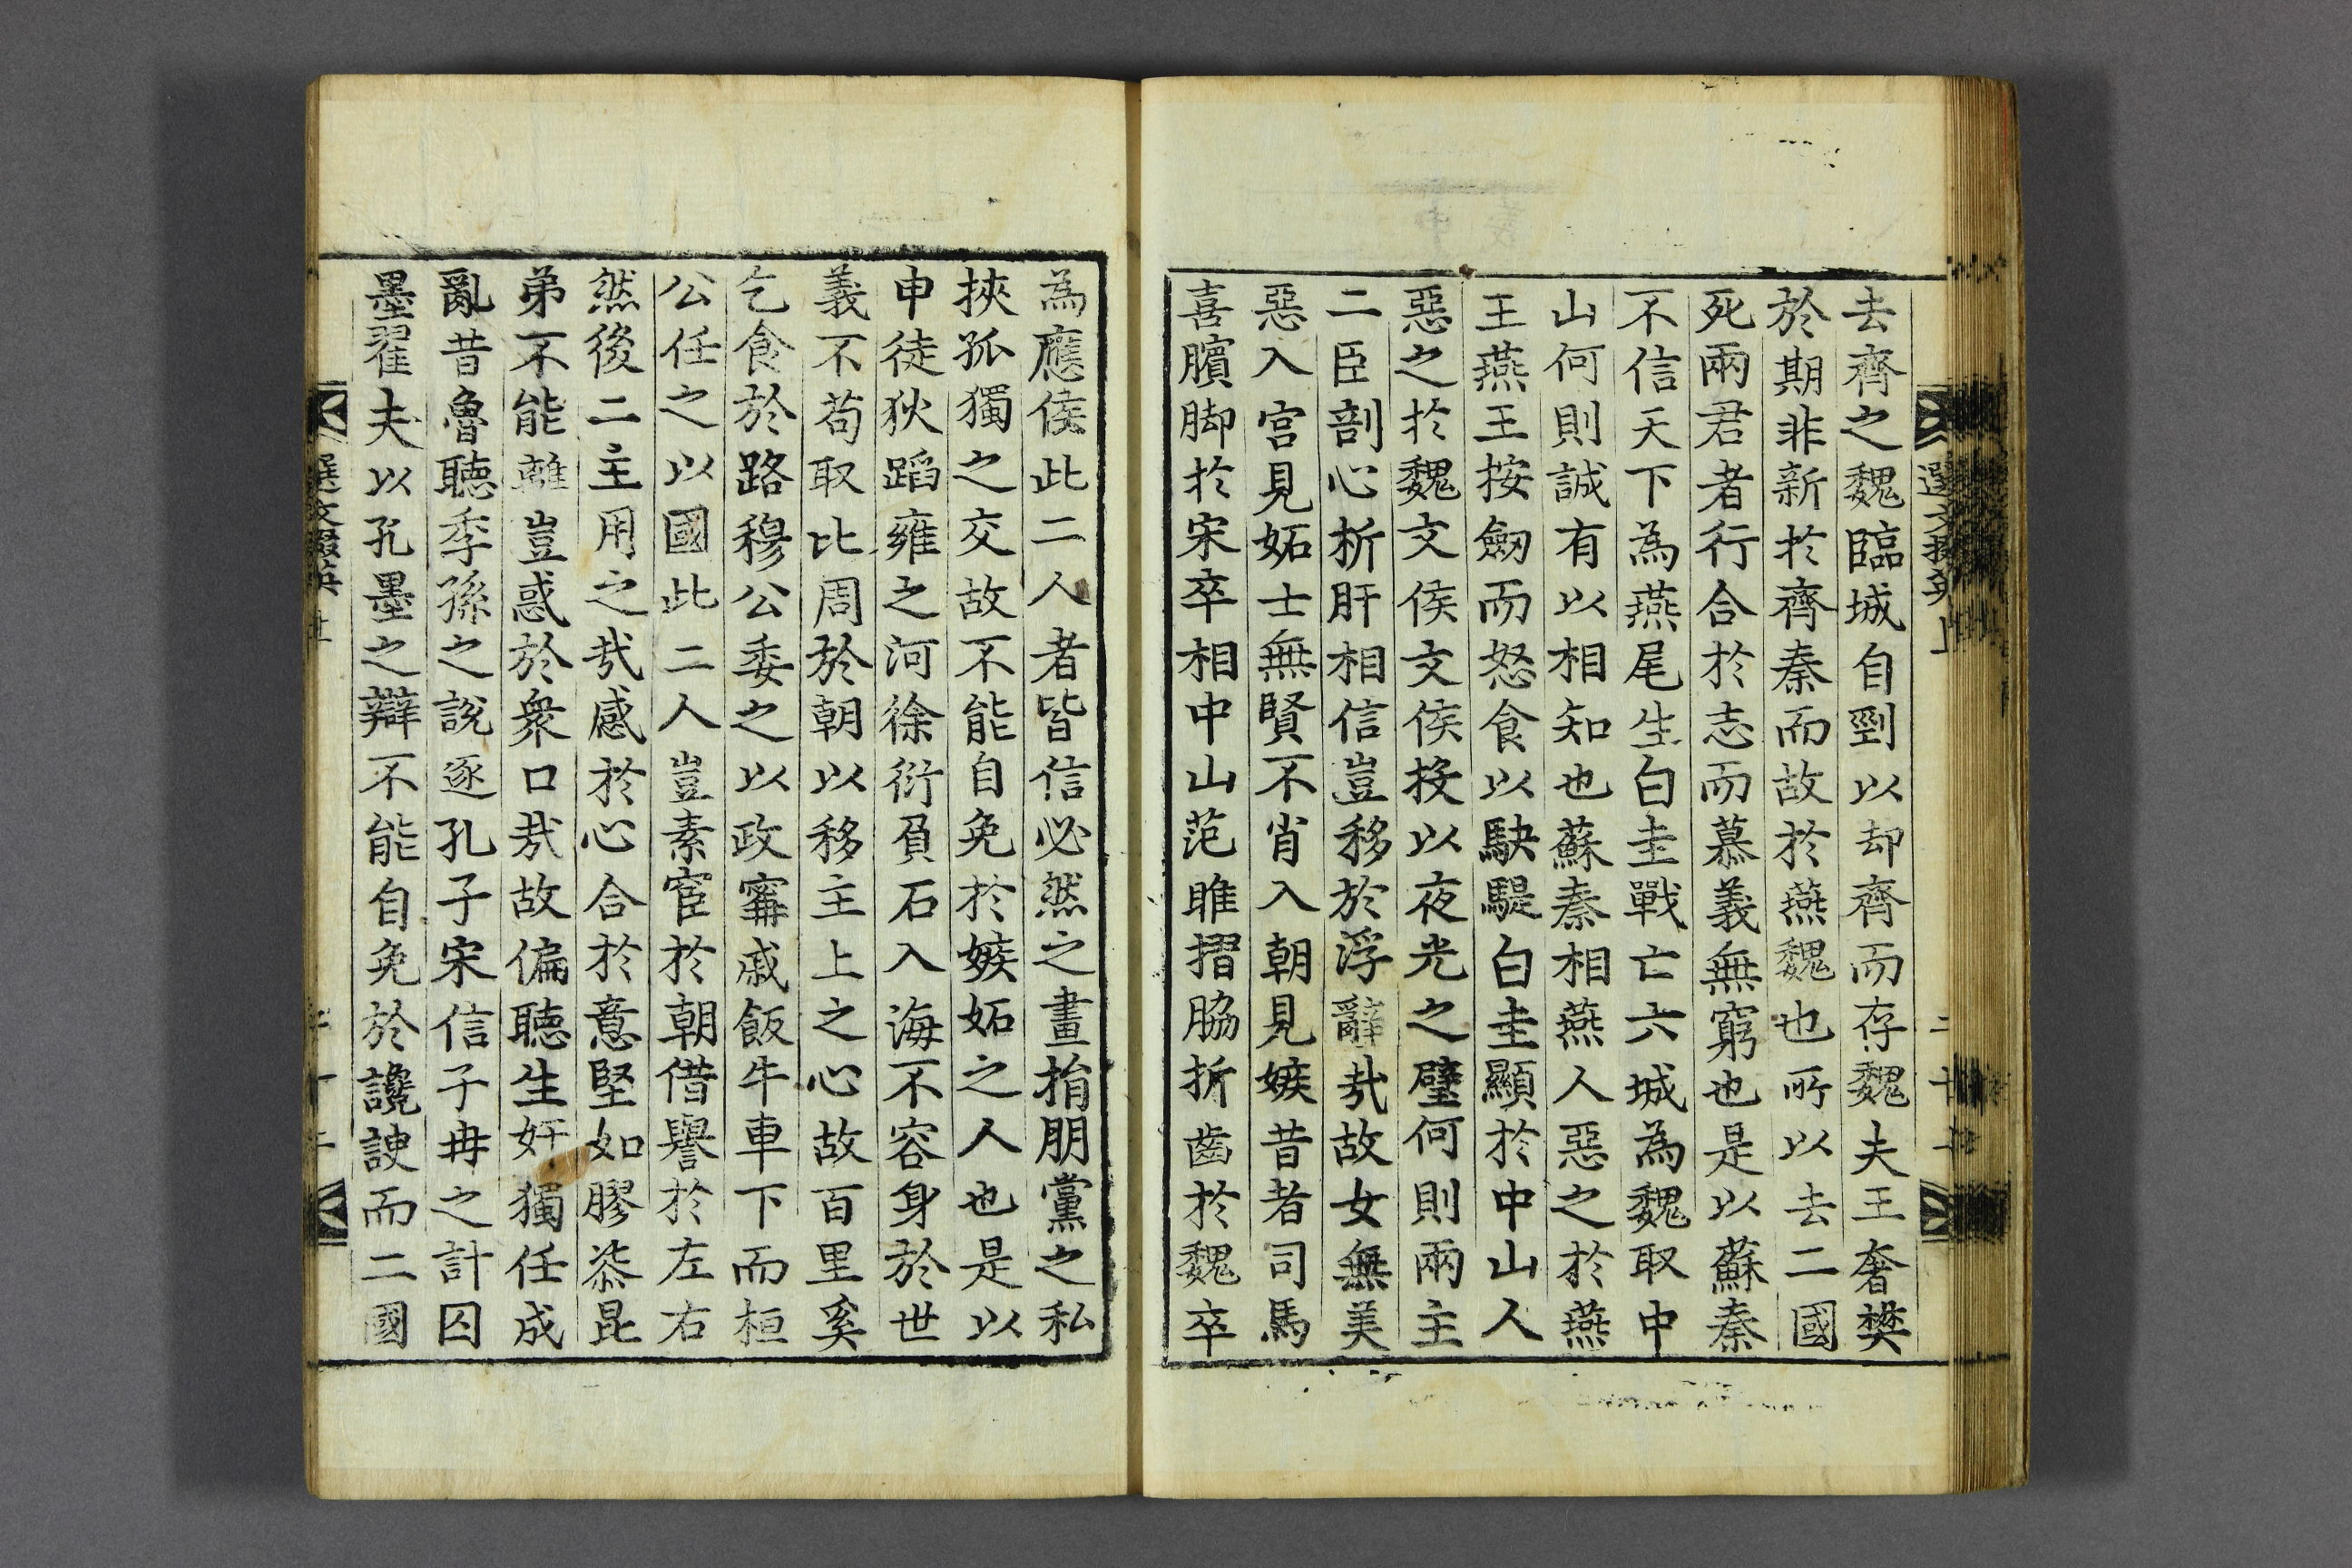 去齊之魏臨城自剄以却齊而存魏夫王奢樊
於期非新於齊秦而故於燕魏也所以去二國
死兩君者行合於志而慕義無窮也是以蘇秦
不信天下為燕尾生白圭戰亡六城為魏取中
山何則誠有以相知也蘇秦相燕人惡之於燕
王燕王按劒而怒食以駃騠白圭顯於中山人
惡之於魏文侯文侯投以夜光之璧何則兩主
二臣剖心析肝相信豈移於浮辭㢤故女無美
惡入宮見妬士無賢不肖入朝見嫉昔者司馬
喜臏脚於宋卒相中山范雎摺脇折齒於魏卒
為應侯此二人者皆信必然之畫捐朋黨之私
挾孤獨之交故不能自免於嫉妬之人也是以
申徒狄蹈雍之河徐衍負石入海不容身於世
義不苟取比周於朝以移主上之心故百里奚
乞食於路穆公委之以政甯戚飯牛車下而桓
公任之以國此二人豈素宦於朝借譽於左右
然後二主用之㢤感於心合於意堅如膠桼昆
弟不能離豈惑於衆口㢤故偏聽生奸獨任成
亂昔魯聽季孫之說逐孔子宋信子冉之計囚
墨翟夫以孔墨之辯不能自免於讒諛而二國